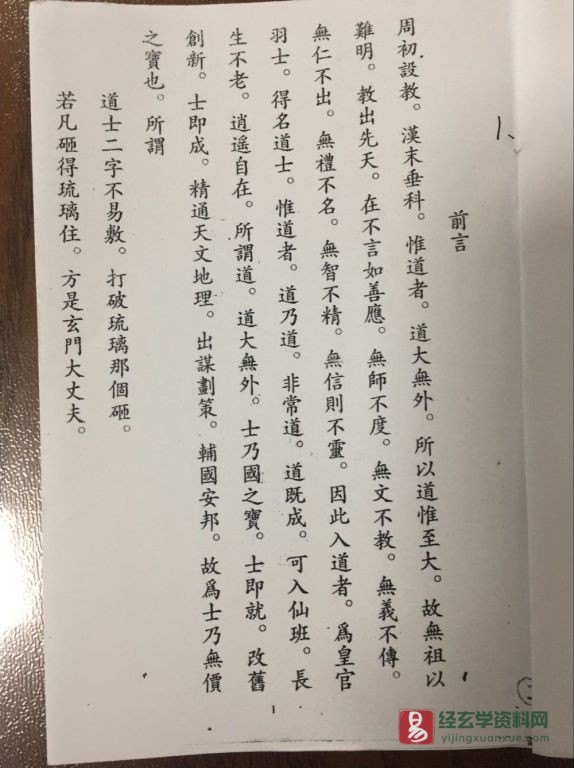 1、
前言
周初設教。漢末垂科。惟道者。道大無外。所以道惟至大。故無祖以
難明。教出先天。在不言如善應。無師不度。無文不教。無義不傳。
無仁不出。無禮不名。無智不精。無信則不靈。因此入道者。爲皇官
羽士。得名道士。惟道者。道乃道。非常道。道既成。可入仙班。長
生不老。逍遥自在。所謂道。道大無外。士乃國之寶。士即就。改舊
創新。士即成。精通天文地理。出謀劃策。輔國安邦。故爲士乃無價
之寶也。所謂
道士二字不易敷。打破琉璃那個砸。
若凡砸得琉璃住。方是玄門大丈夫。
1
易
经玄学资料网
yijingxuanxue.com